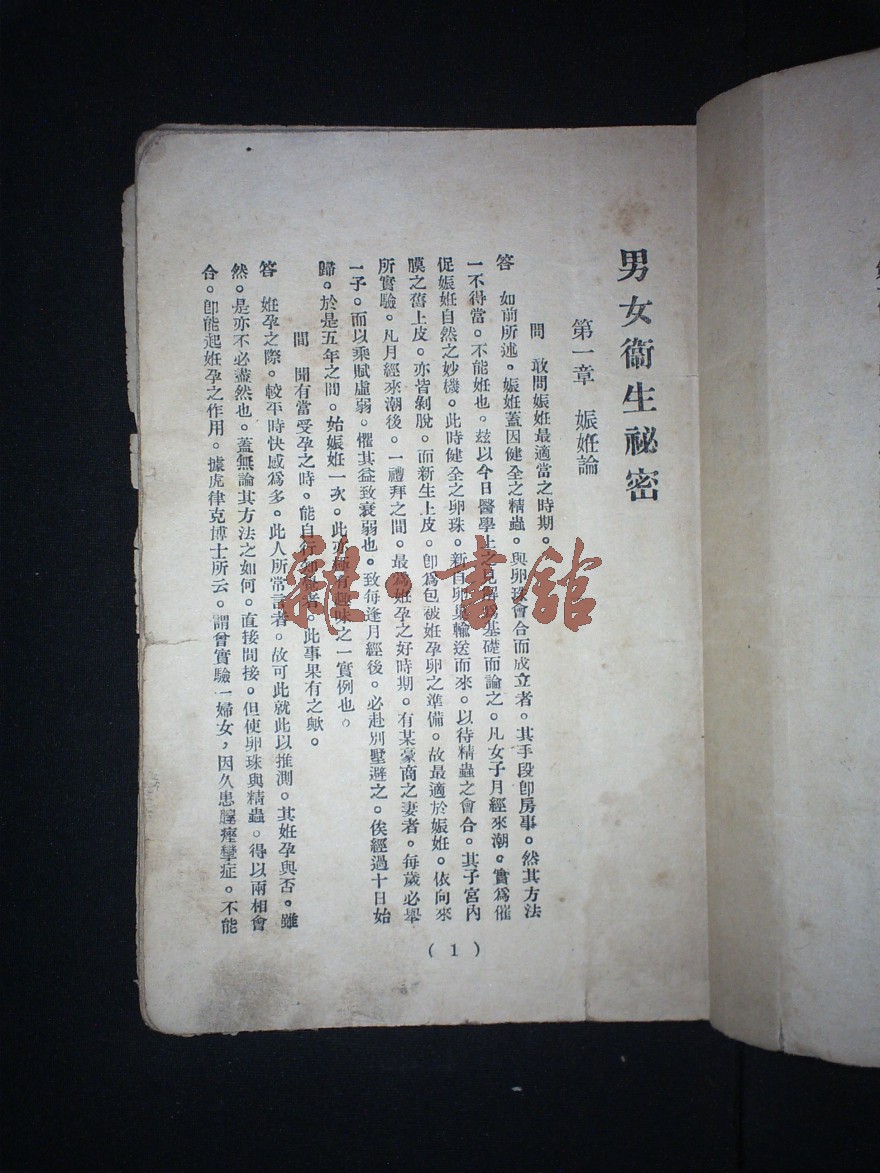 男女衞生祕密
第一章　娠姙論
問　敢問娠姙最適當之時期。
答　如前所述。娠姙蓋因健全之精蟲。與卵珠會合而成立者。其手段卽房事。然其方法
一不得當。不能姙也。玆以今日醫學上之見解爲基礎而論之。凡女子月經來潮。實爲催
促娠姙自然之妙機。此時健全之卵珠。新自卵巢輸送而來。以待精蟲之會合。其子宮內
膜之舊上皮。亦皆剝脫。而新生上皮。卽爲包被姙孕卵之準備。故最適於娠姙。依向來
所實驗。凡月經來潮後。一禮拜之間。最爲姙孕之好時期。有某豪商之妻者。每歲必舉
一子。而以乘賦虛弱。懼其益致衰弱也。致每逢月經後。必赴別墅避之。俟經過十日始
歸。於是五年之間。始娠姙一次。此亦極有趣味之一實例也。
問　聞有當受孕之時。能自行知覺者。此事果有之歟。
答　姙孕之際。較平時快感爲多。此人所常言者。故可此就此以推測。其姙孕與否。雖
然。是亦不必盡然也。蓋無論其方法之如何。直接間接。但使卵珠與精蟲。得以兩相會
合。卽能起姙孕之作用。據虎律克博士所云。謂曾實驗一婦女，因久患膣痙攣症。不能
( 1 )
雜·書館